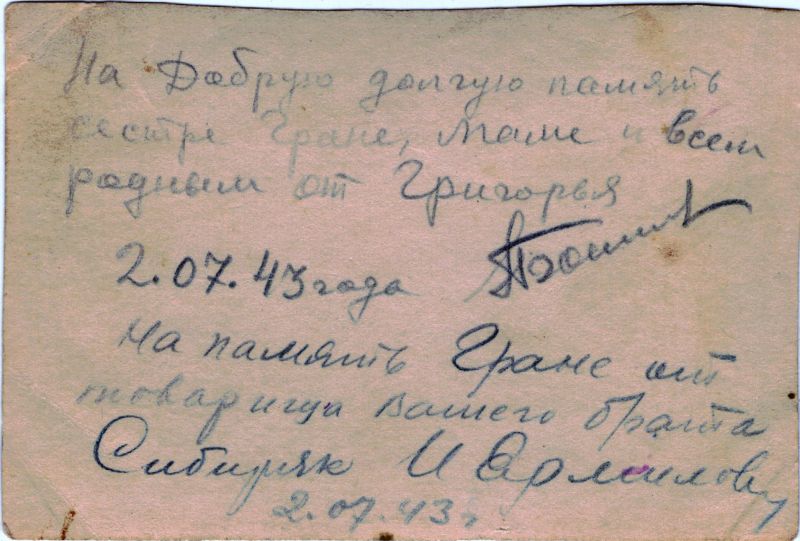 На Добрую долгую память
сестре Гране, Маме и всем
родным от Григорья
2.07.43 года
На память Гране от
товарища Вашего брата
Сибиряк И
2.07.43 г